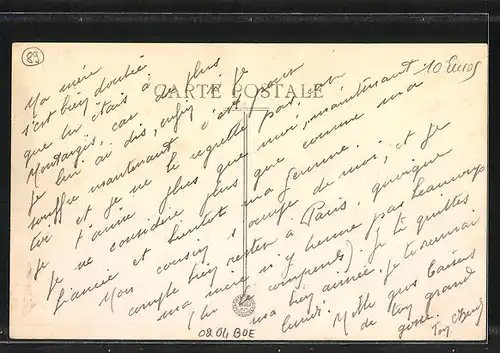 89
CARTE POSTALE
10 Euros
Ma mère
s'est bien doutée
que tu étais à
Montargis, car de plus
je lui ai dis, enfin si je
souffre maintenant c'est pour
toi et je ne le regrette pas, car
je t'aime plus que moi, maintenant
je ne considère plus que comme ma
fiancée et bientôt ma femme.
Mon cousin s'occupe de moi, et je
compte bien rester à Paris, quoique
ma mère n'y tienne pas beaucoup
(tu le comprends). Je te quitte
ma bien aimée. Je te reverrai
lundi. Mille gros baisers
de ton grand
gosse.
Ton
08.04 BUE